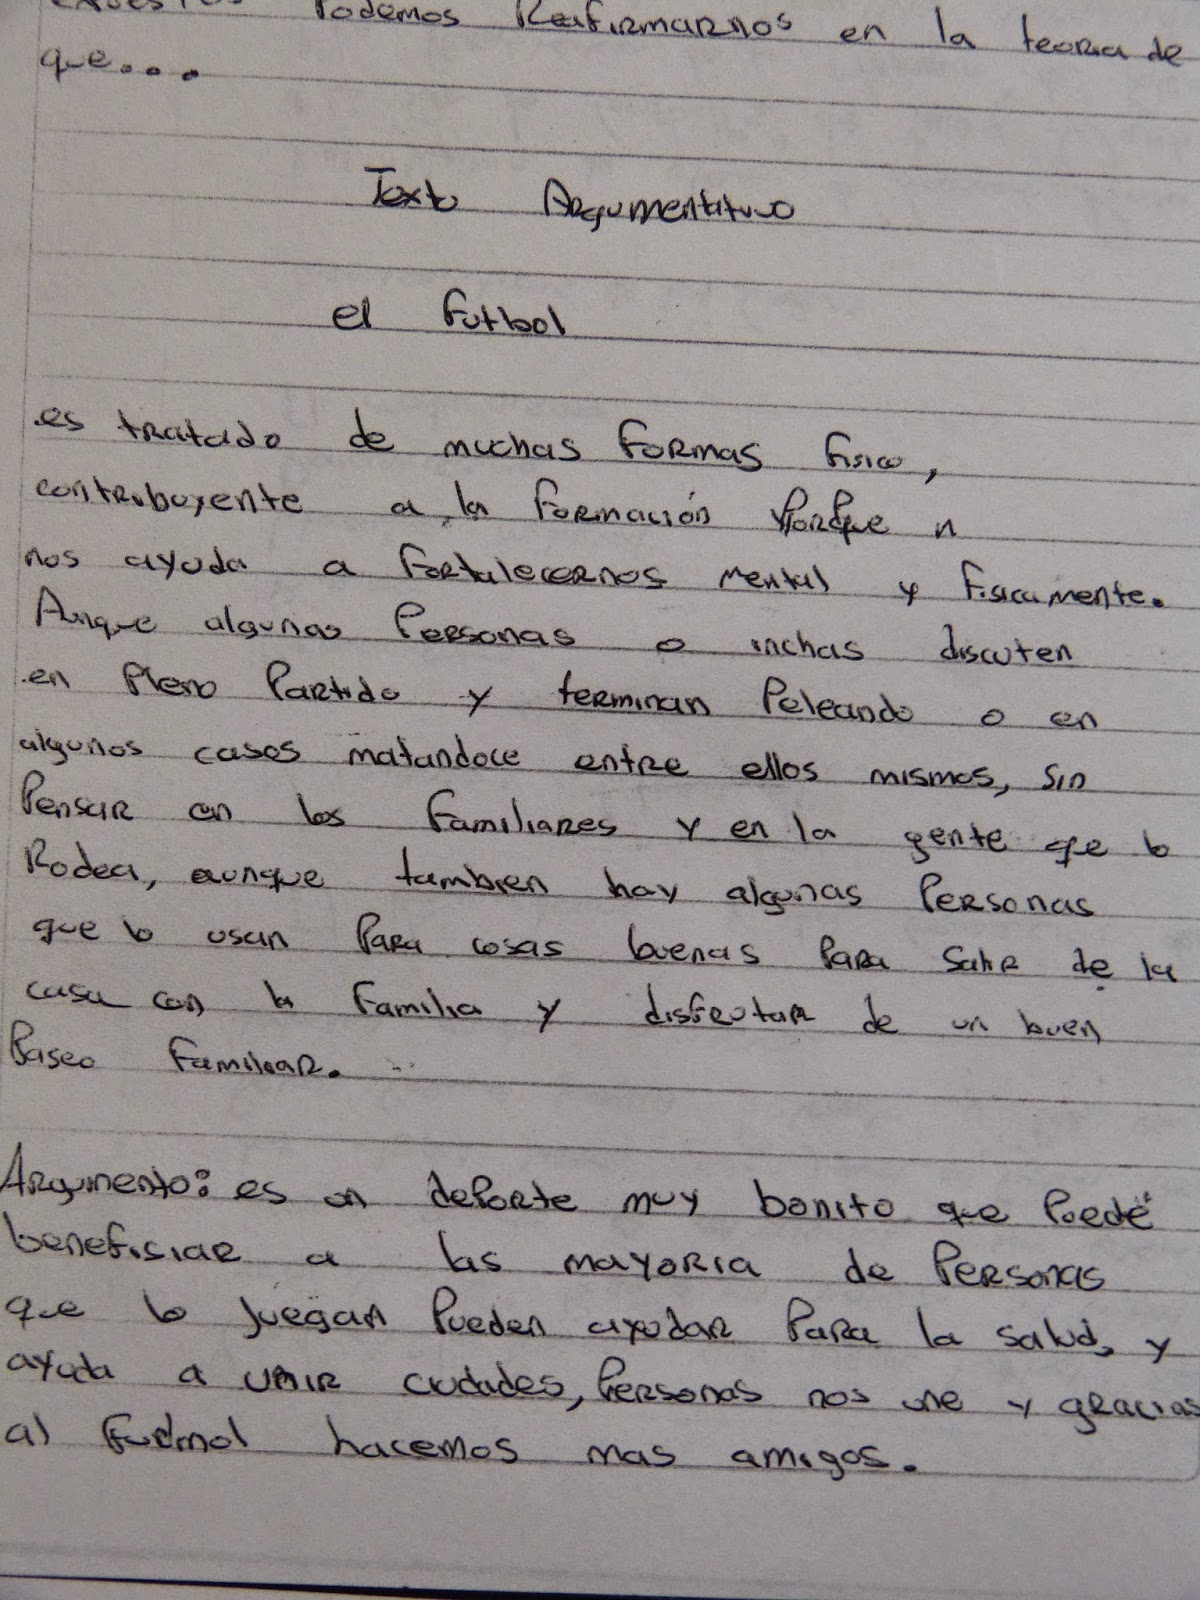 Podemos Reafirmarnos en la teoria de
que...
Texto Argumentativo
el futbol
es tratado de muchas formas fisico,
contribuyente a la formación porque n
nos ayuda a fortalecernos mental y fisicamente.
Aunque algunas Personas o inchas discuten
en Pleno Partido y terminan Peleando o en
algunos casos matandoce entre ellos mismos, sin
Pensar en los familiares y en la gente que lo
Rodea, aunque tambien hay algunas Personas
que lo usan Para cosas buenas Para salir de la
casa con la familia y disfrutar de un buen
Paseo familiar.
Argumento: es un deporte muy bonito que Puede
benefisiar a las mayoria de Personas
que lo juegan Pueden ayudar Para la salud, y
ayuda a unir ciudades, Personas nos une y gracias
al hacemos mas amigos.